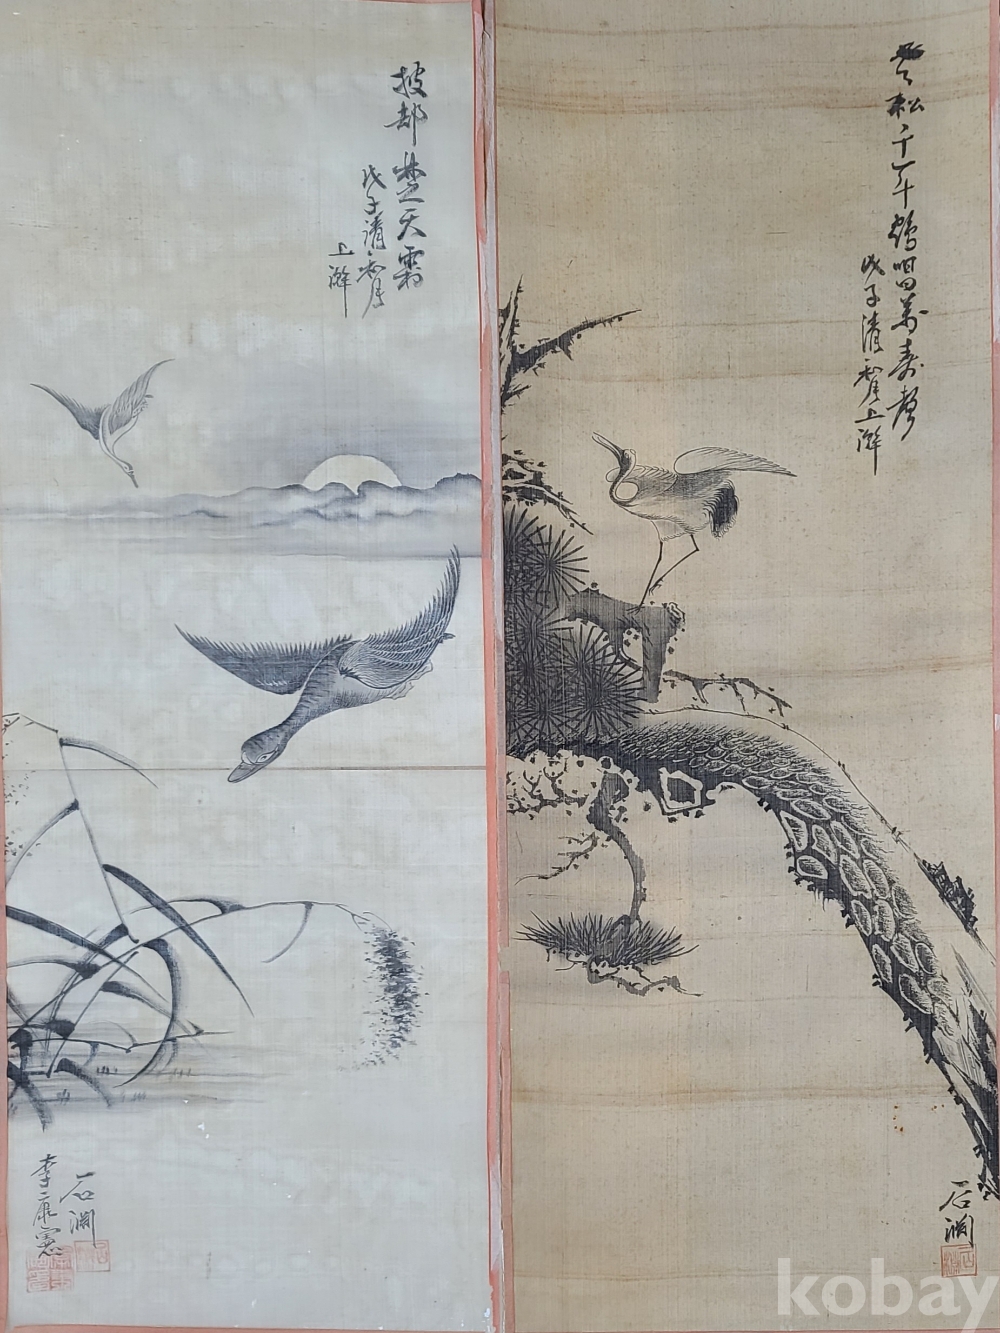 披都楚天霜
戊子清和月
上澣
石澗
李康憲
松千年鶴唱萬壽聲
戊子清和月上澣
石澗
kobay